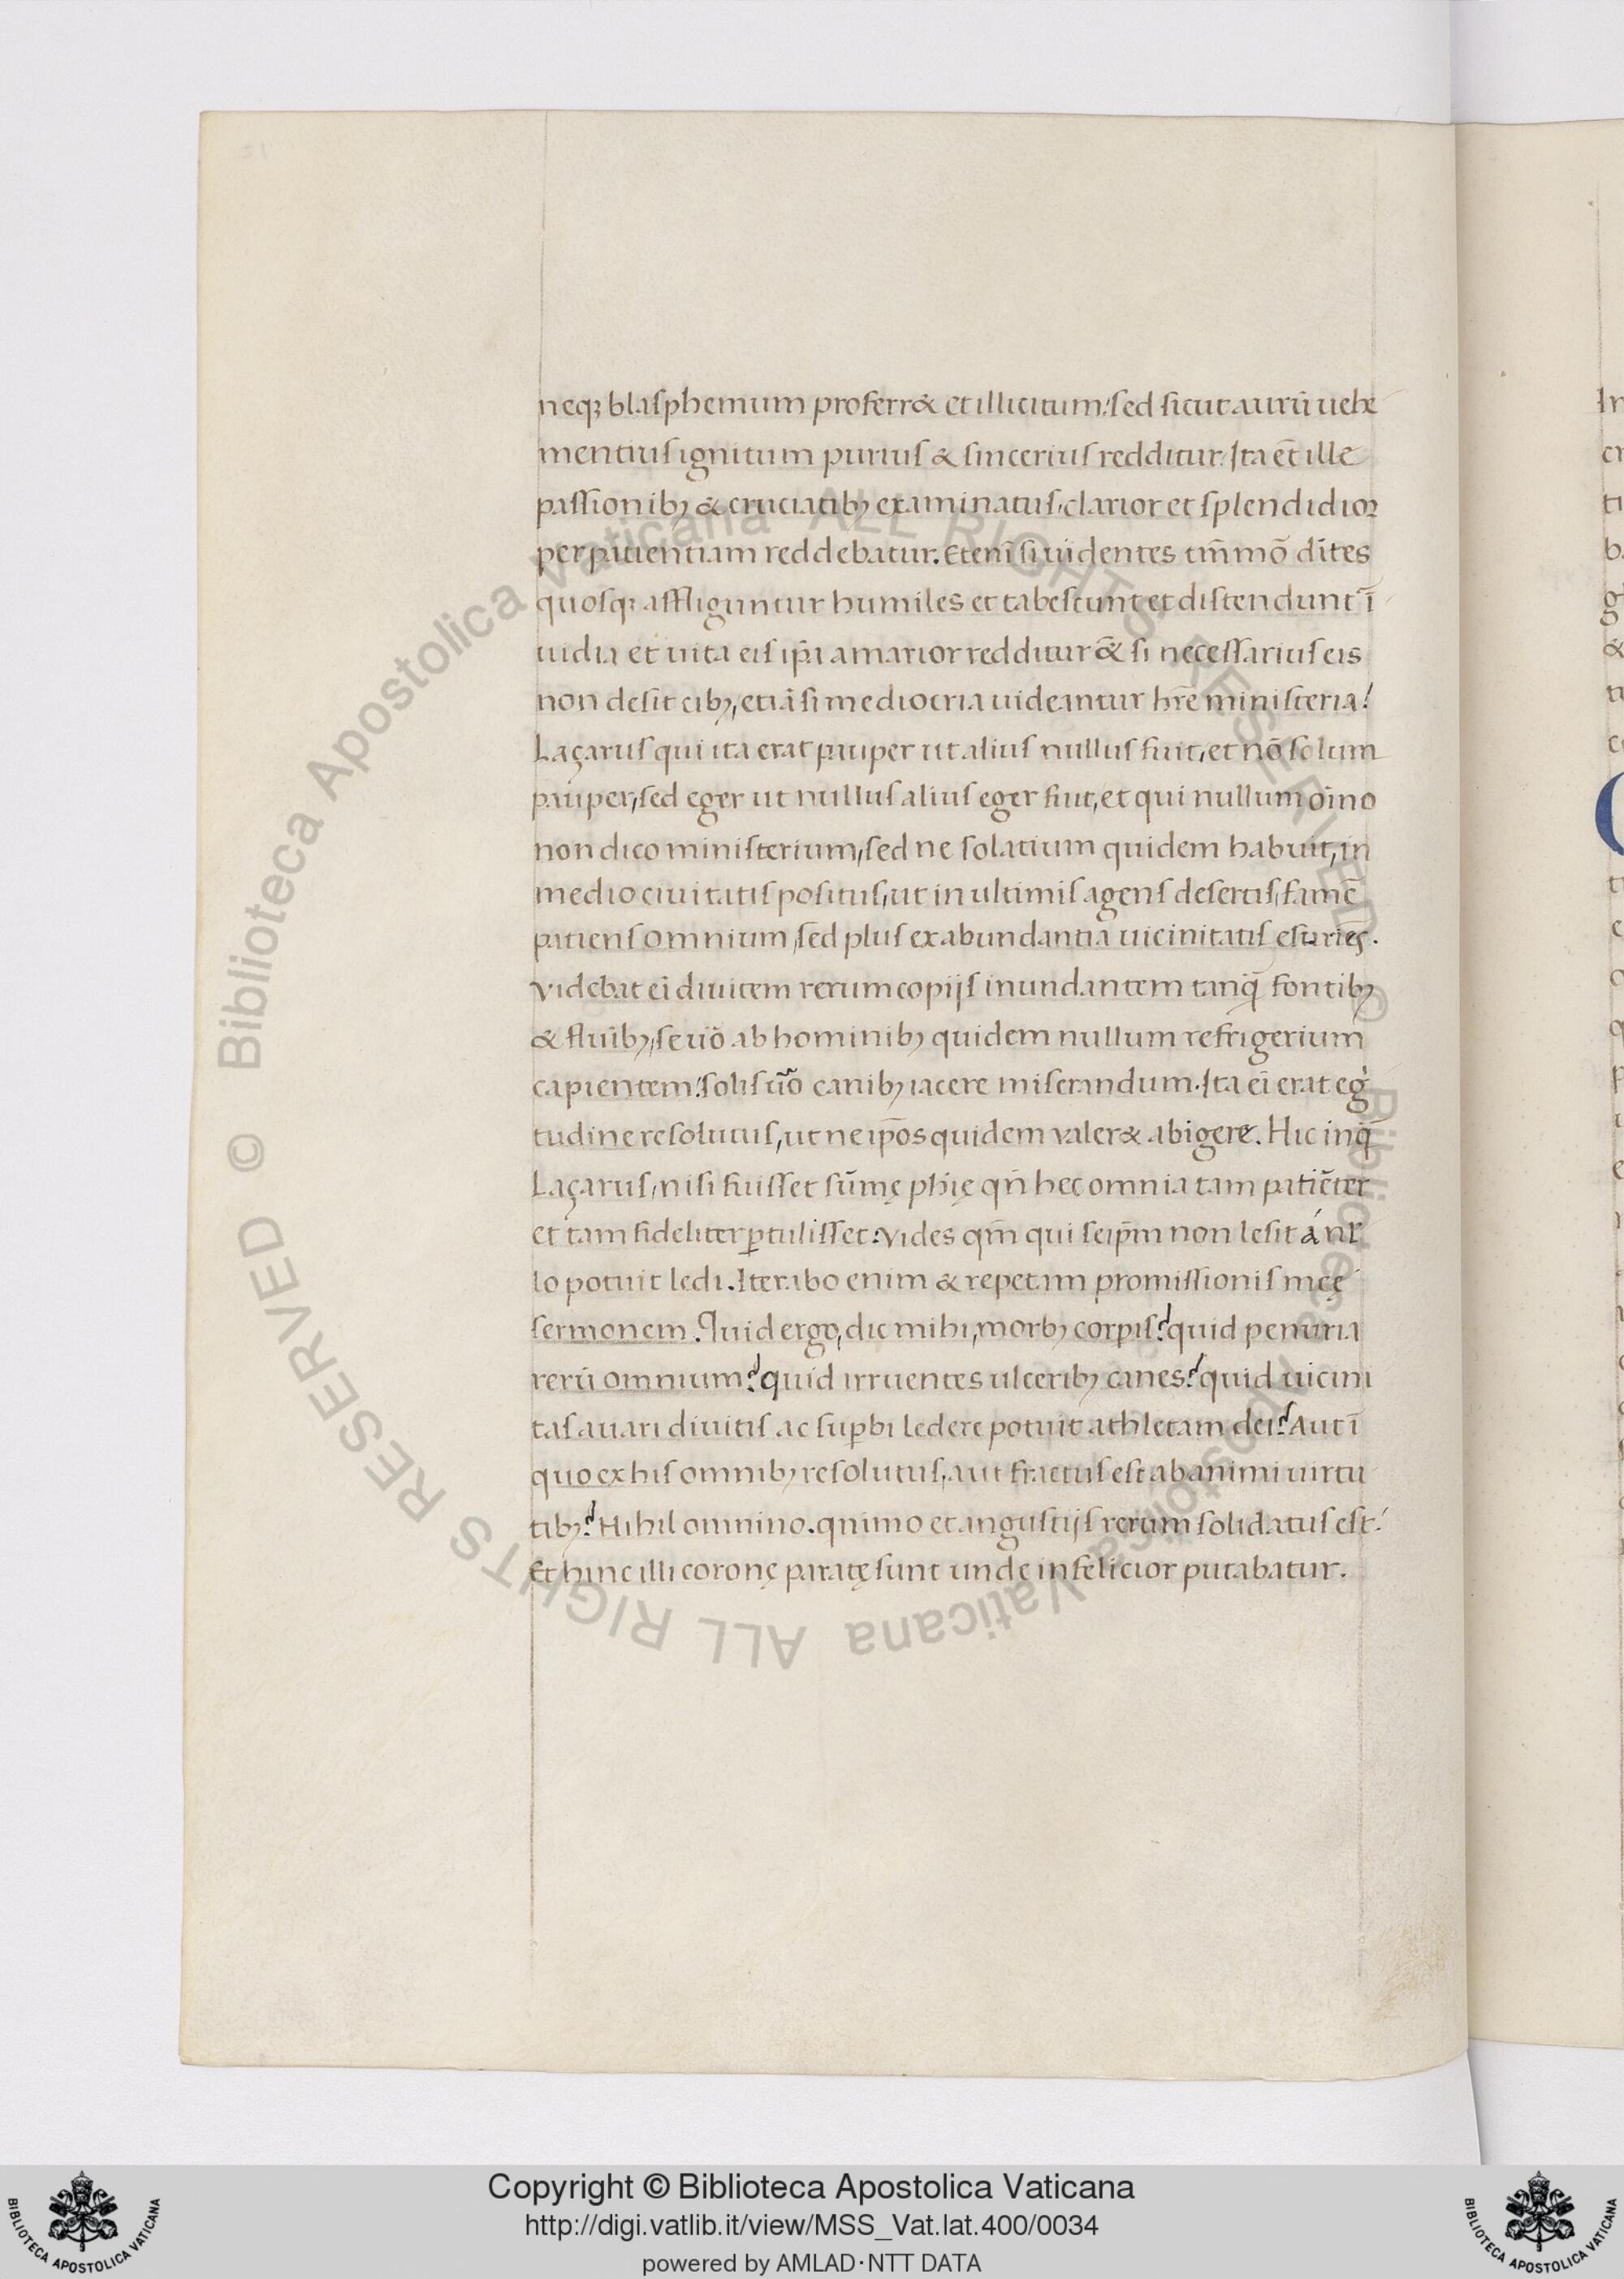 neqꝫ blasphemum proferr& et illicitum: sed sicut aurū uehe
mentius ignitum purius & sincerius redditur. Ita eē ille
passionibꝫ & cruciatibꝫ examinatus, clarior et splendidior
per patientiam reddebatur. Etenī si uidentes tm̄mō dītes
quosqꝫ affliguntur humiles et tabescunt et distendunt ī
uidia et uita eis ip̄a amarior redditur & si necessarius eis
non desit cibꝫ, etiā si mediocria uideantur hr̄e ministeria!
Laçarus qui ita erat pauper ut alius nullus fuit, et nō solum
pauper, sed eger ut nullus alius eger fuit, et qui nullum oīno
non dico ministerium, sed ne solatium quidem habuit, in
medio ciuitatis positus, ut in ultimis agens desertis, famē
patiens omnium, sed plus ex abundantia uicinitatis esuries.
Videbat eī diuitem rerum copijs inundantem tanq̄ fontibꝫ
& fluūbꝫ, se uō ab hominibꝫ quidem nullum refrigerium
capientem: solis uō canibꝫ iacere miserandum. Ita eī erat eg
tudine resolutus, ut ne ip̄os quidem valer& abigere. Hic inq̄
Laçarus, nisi fuisset sūmę ph̄ię qn̄ hec omnia tam patiēter
et tam fideliter ꝑtulisset: Vides qm̄ qui seip̄m non lesit á nl
lo potuit ledi. Iterabo enim & repetam promissionis meę
sermonem. Quid ergo, dic mihi, morbꝫ corꝑis? quid penuria
rerū omnium? quid irruentes ulceribꝫ canes? quid uicini
tas auari diuitis ac suꝑbi ledere potuit athletam dei? Aut ī
quo ex his omnibꝫ resolutus, aut fractus est ab animi uirtu
tibꝫ? Nihil omnino. quimo et angustijs rerum solidatus est:
Et hinc illi coronę paratę sunt unde infelicior putabatur.
Copyright © Biblioteca Apostolica Vaticana
http://digi.vatlib.it/view/MSS_Vat.lat.400/0034
powered by AMLAD·NTT DATA
BIBLIOTECA APOSTOLICA VATICANA
BIBLIOTECA APOSTOLICA VATICANA
© Biblioteca Apostolica Vaticana ALL RIGHTS RESERVED
© Biblioteca Apostolica Vaticana ALL RIGHTS RESERVED